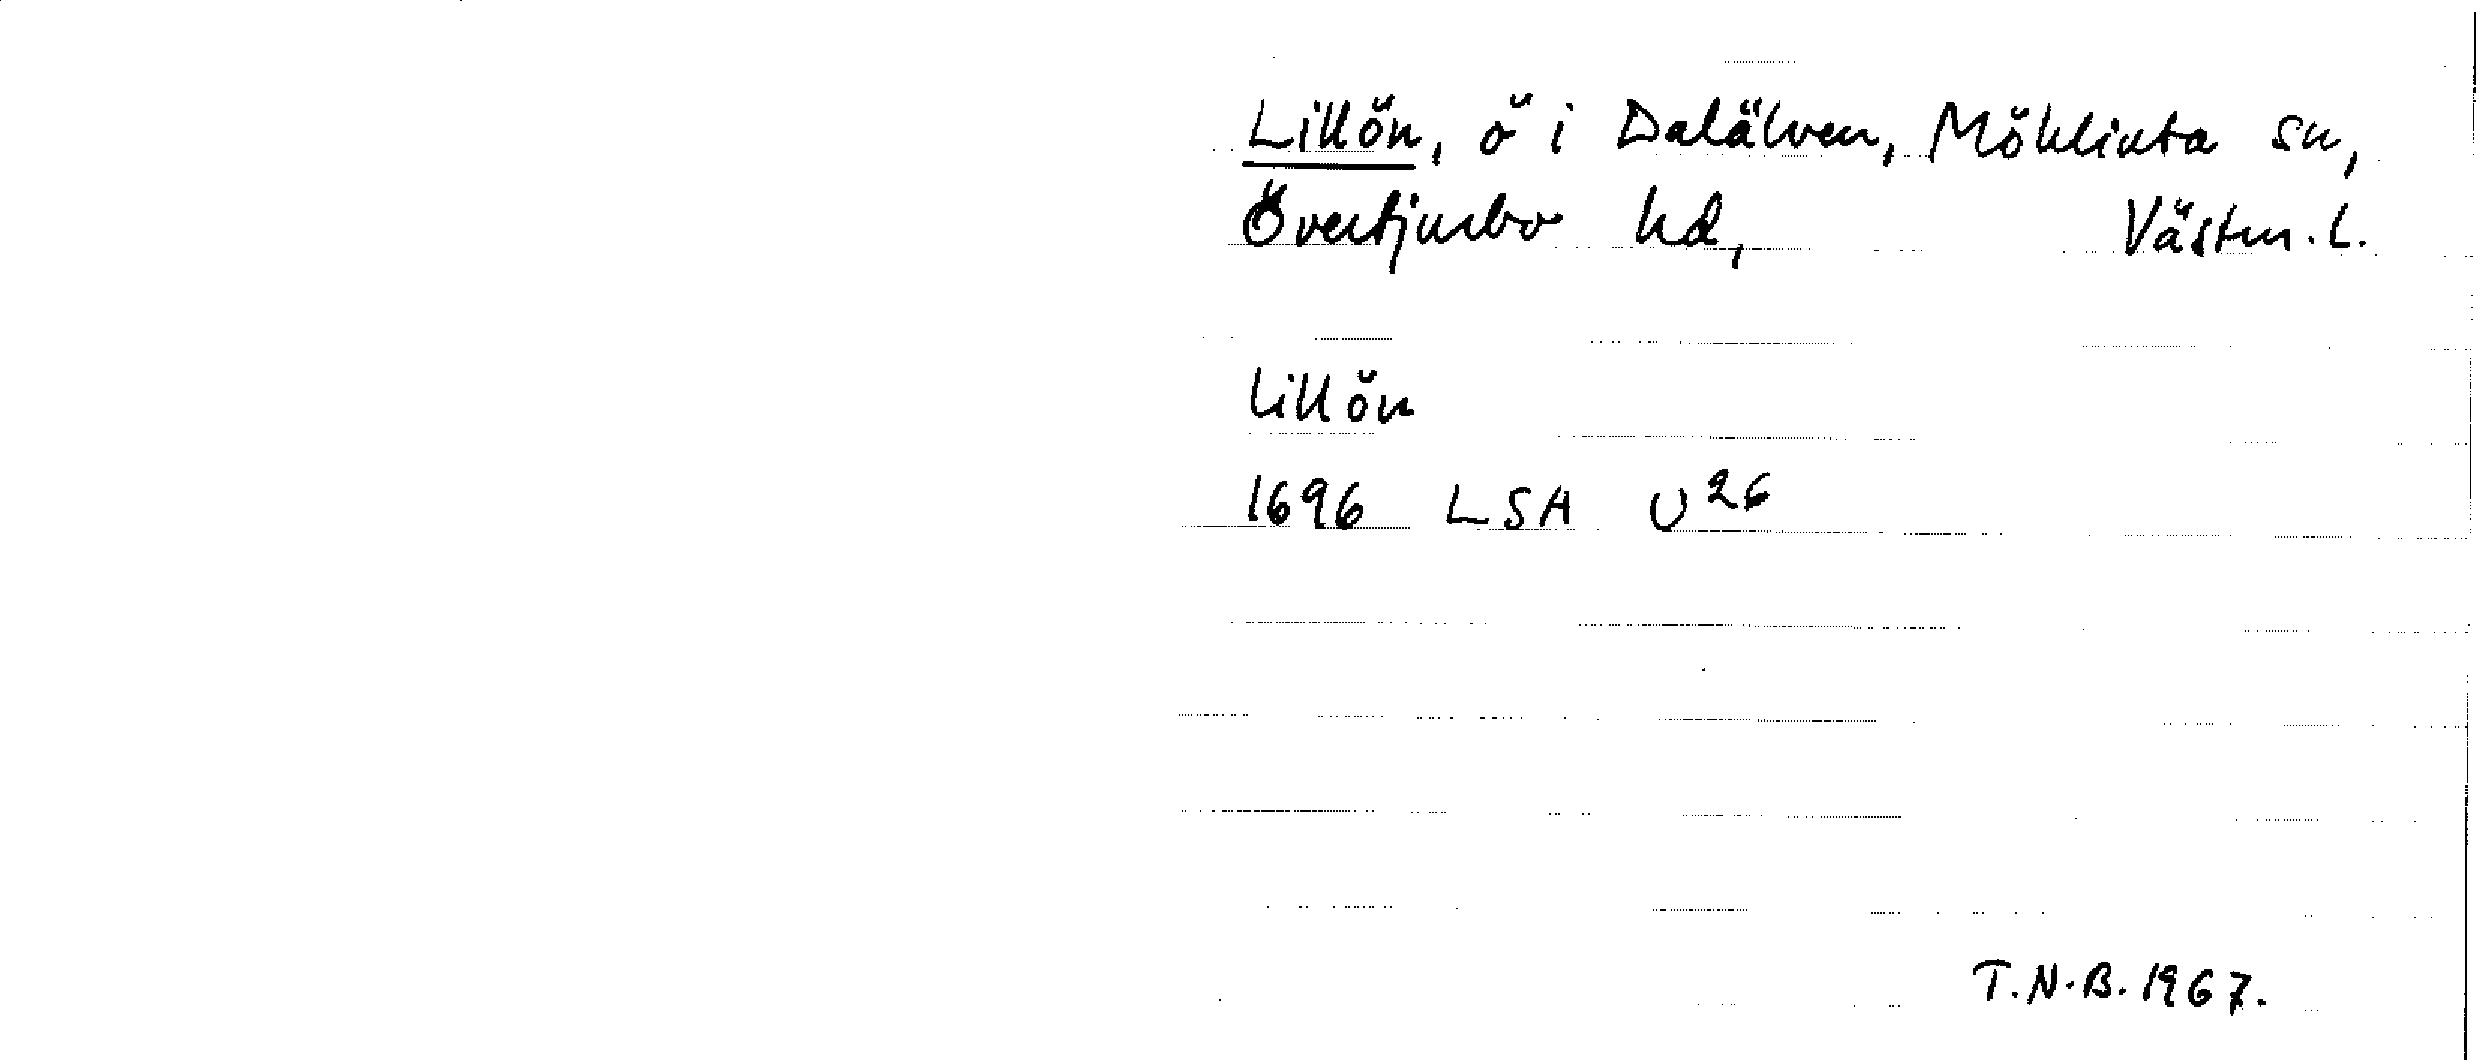 Lillön, ö i Dalälven, Möklinta sn,
Övertjurbo hd, Västm. l.
Lillön
1696 LSA U 26
T.N.B. 1967.